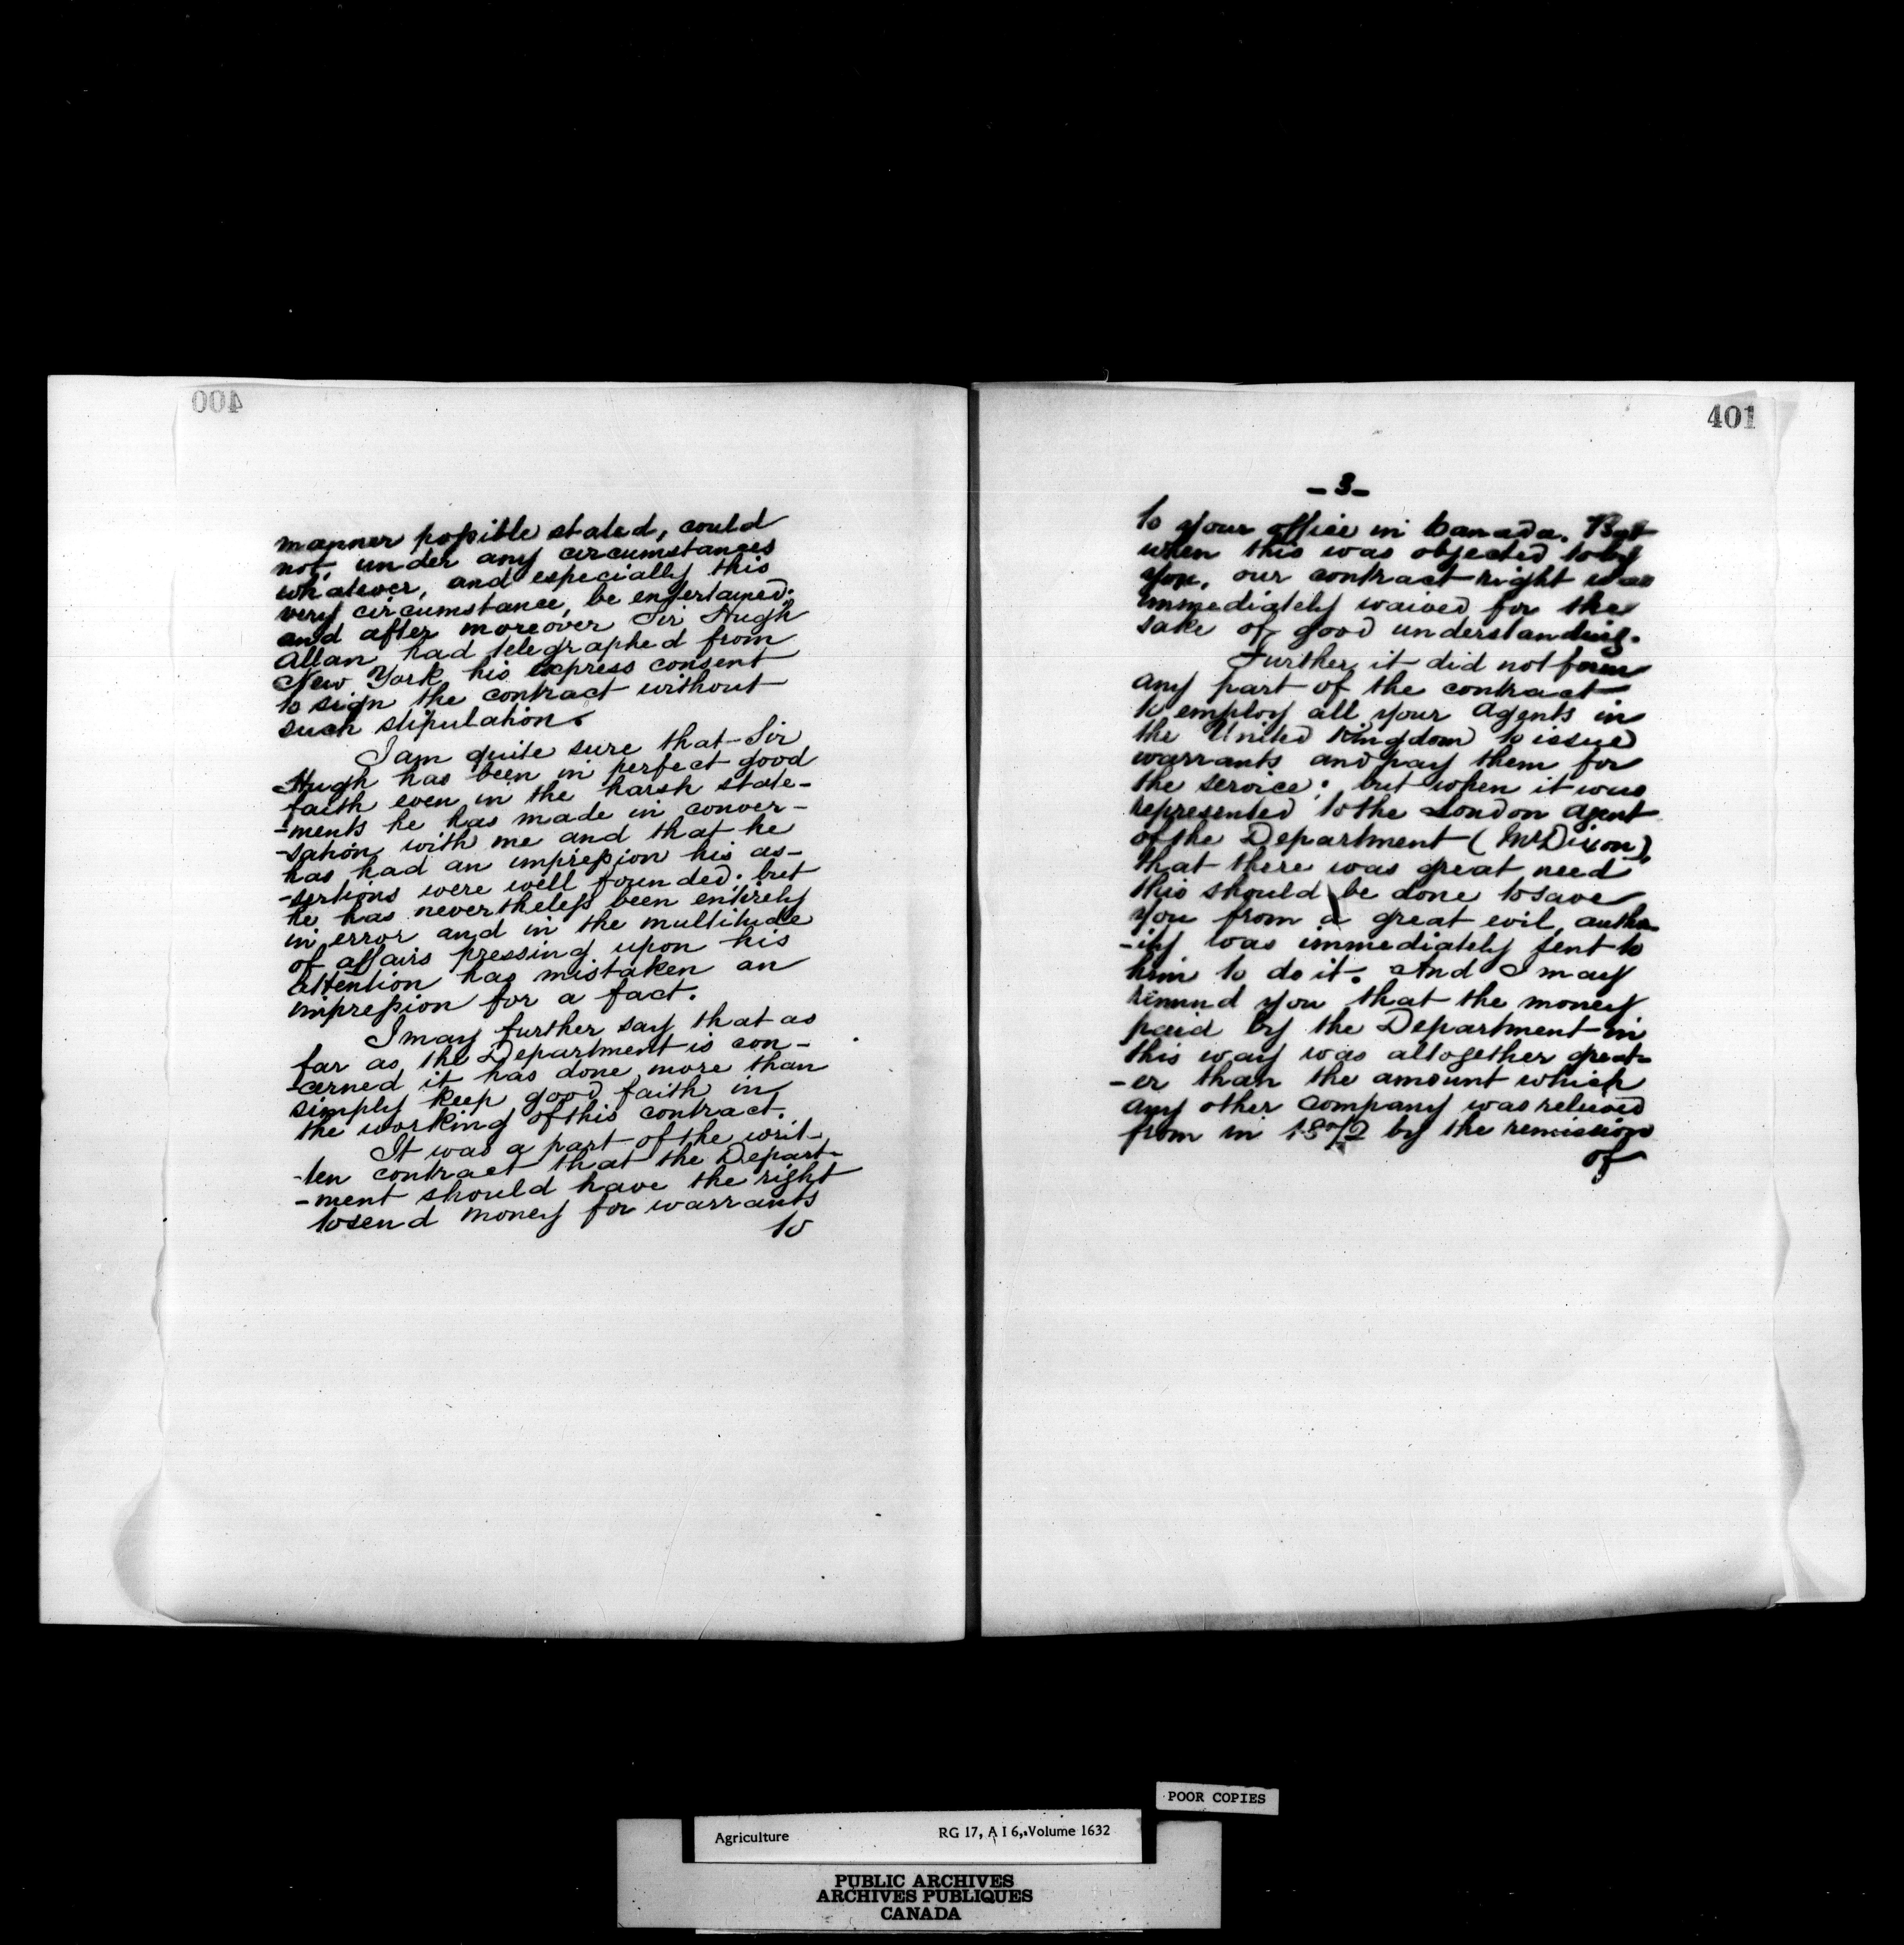 400
manner possible stated, could
not, under any circumstances
whatever, and especially this
very circumstance, be entertained;
and after moreover Sir Hugh
Allan had telegraphed from
New York his express consent
to sign the contract without
such stipulation.
I am quite sure that Sir
Hugh has been in perfect good
faith even in the harsh state-
-ments he has made in conver-
-sation with me and that he
has had an impression his as-
-sertions were well founded; but
he has nevertheless been entirely
in error and in the multitude
of affairs pressing upon his
attention has mistaken an
impression for a fact.
I may further say that as
far as the Department is con-
-cerned it has done more than
simply keep good faith in
the working of this contract.
It was a part of the writ-
-ten contract that the Depart-
-ment should have the right
to send money for warrants
to
401
-3-
to your office in Canada. But
when this was objected to by
you, our contract right was
immediately waived for the
sake of good understanding.
Further it did not form
any part of the contract
to employ all your Agents in
the United Kingdom to issue
warrants and pay them for
the service; but when it was
represented to the London Agent
of the Department (Mr Dixon),
that there was great need
this should be done to save
you from a great evil, autho-
-ity was immediately sent to
him to do it. And I may
remind you that the money
paid by the Department in
this way was altogether great-
-er than the amount which
any other company was relieved
from in 1872 by the remission
of
POOR COPIES
Agriculture RG 17, A I 6, Volume 1632
PUBLIC ARCHIVES
ARCHIVES PUBLIQUES
CANADA